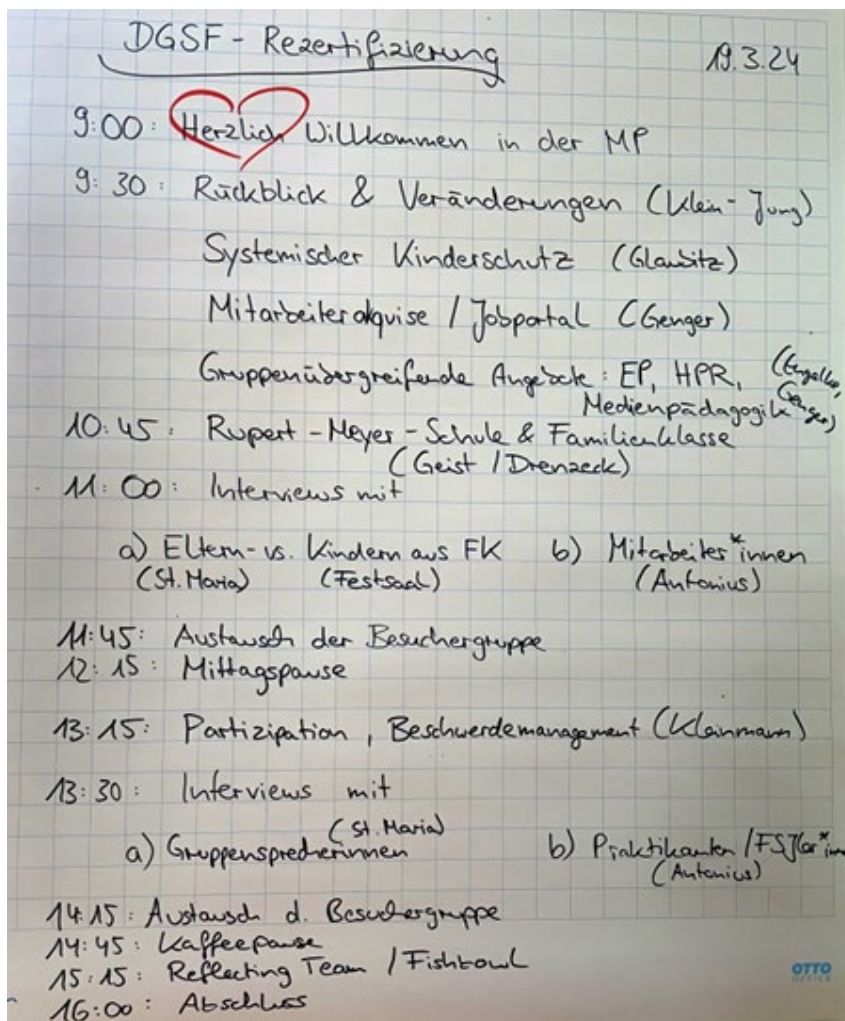 DGSF - Rezertifizierung
19.3.24
9:00: Herzlich Willkommen in der MP
9:30: Rückblick & Veränderungen (Klein-Jung)
Systemischer Kinderschutz (Glaubitz)
Mitarbeiterakquise / Jobportal (Genger)
Gruppenübergreifende Angebote: EP, HPR,
Medienpädagogik Genger)
10:45: Rupert-Meyer-Schule & Familienklasse
(Geist / Drenzeck)
11:00: Interviews mit
a) Eltern- vs. Kindern aus FK b) Mitarbeiter*innen
(St. Maria) (Festsaal) (Antonius)
11:45: Austausch der Besuchergruppe
12:15: Mittagspause
13:15: Partizipation, Beschwerdemanagement (Kleinmann)
13:30: Interviews mit
(St. Maria)
a) Gruppensprecherinnen b) Praktikanten /
(Antonius)
14:15: Austausch d. Besuchergruppe
14:45: Kaffeepause
15:15: Reflecting Team / Fishbowl
16:00: Abschluss
OTTO
OFFICE